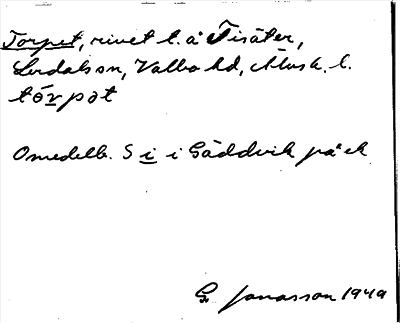 Torpet, rivet t. å Tisäter,
Lerdals sn, Valbo hd, Älvsb. l.
tórpət
Omedelb. S i i Gäddvik på ek
G. Jonasson 1949